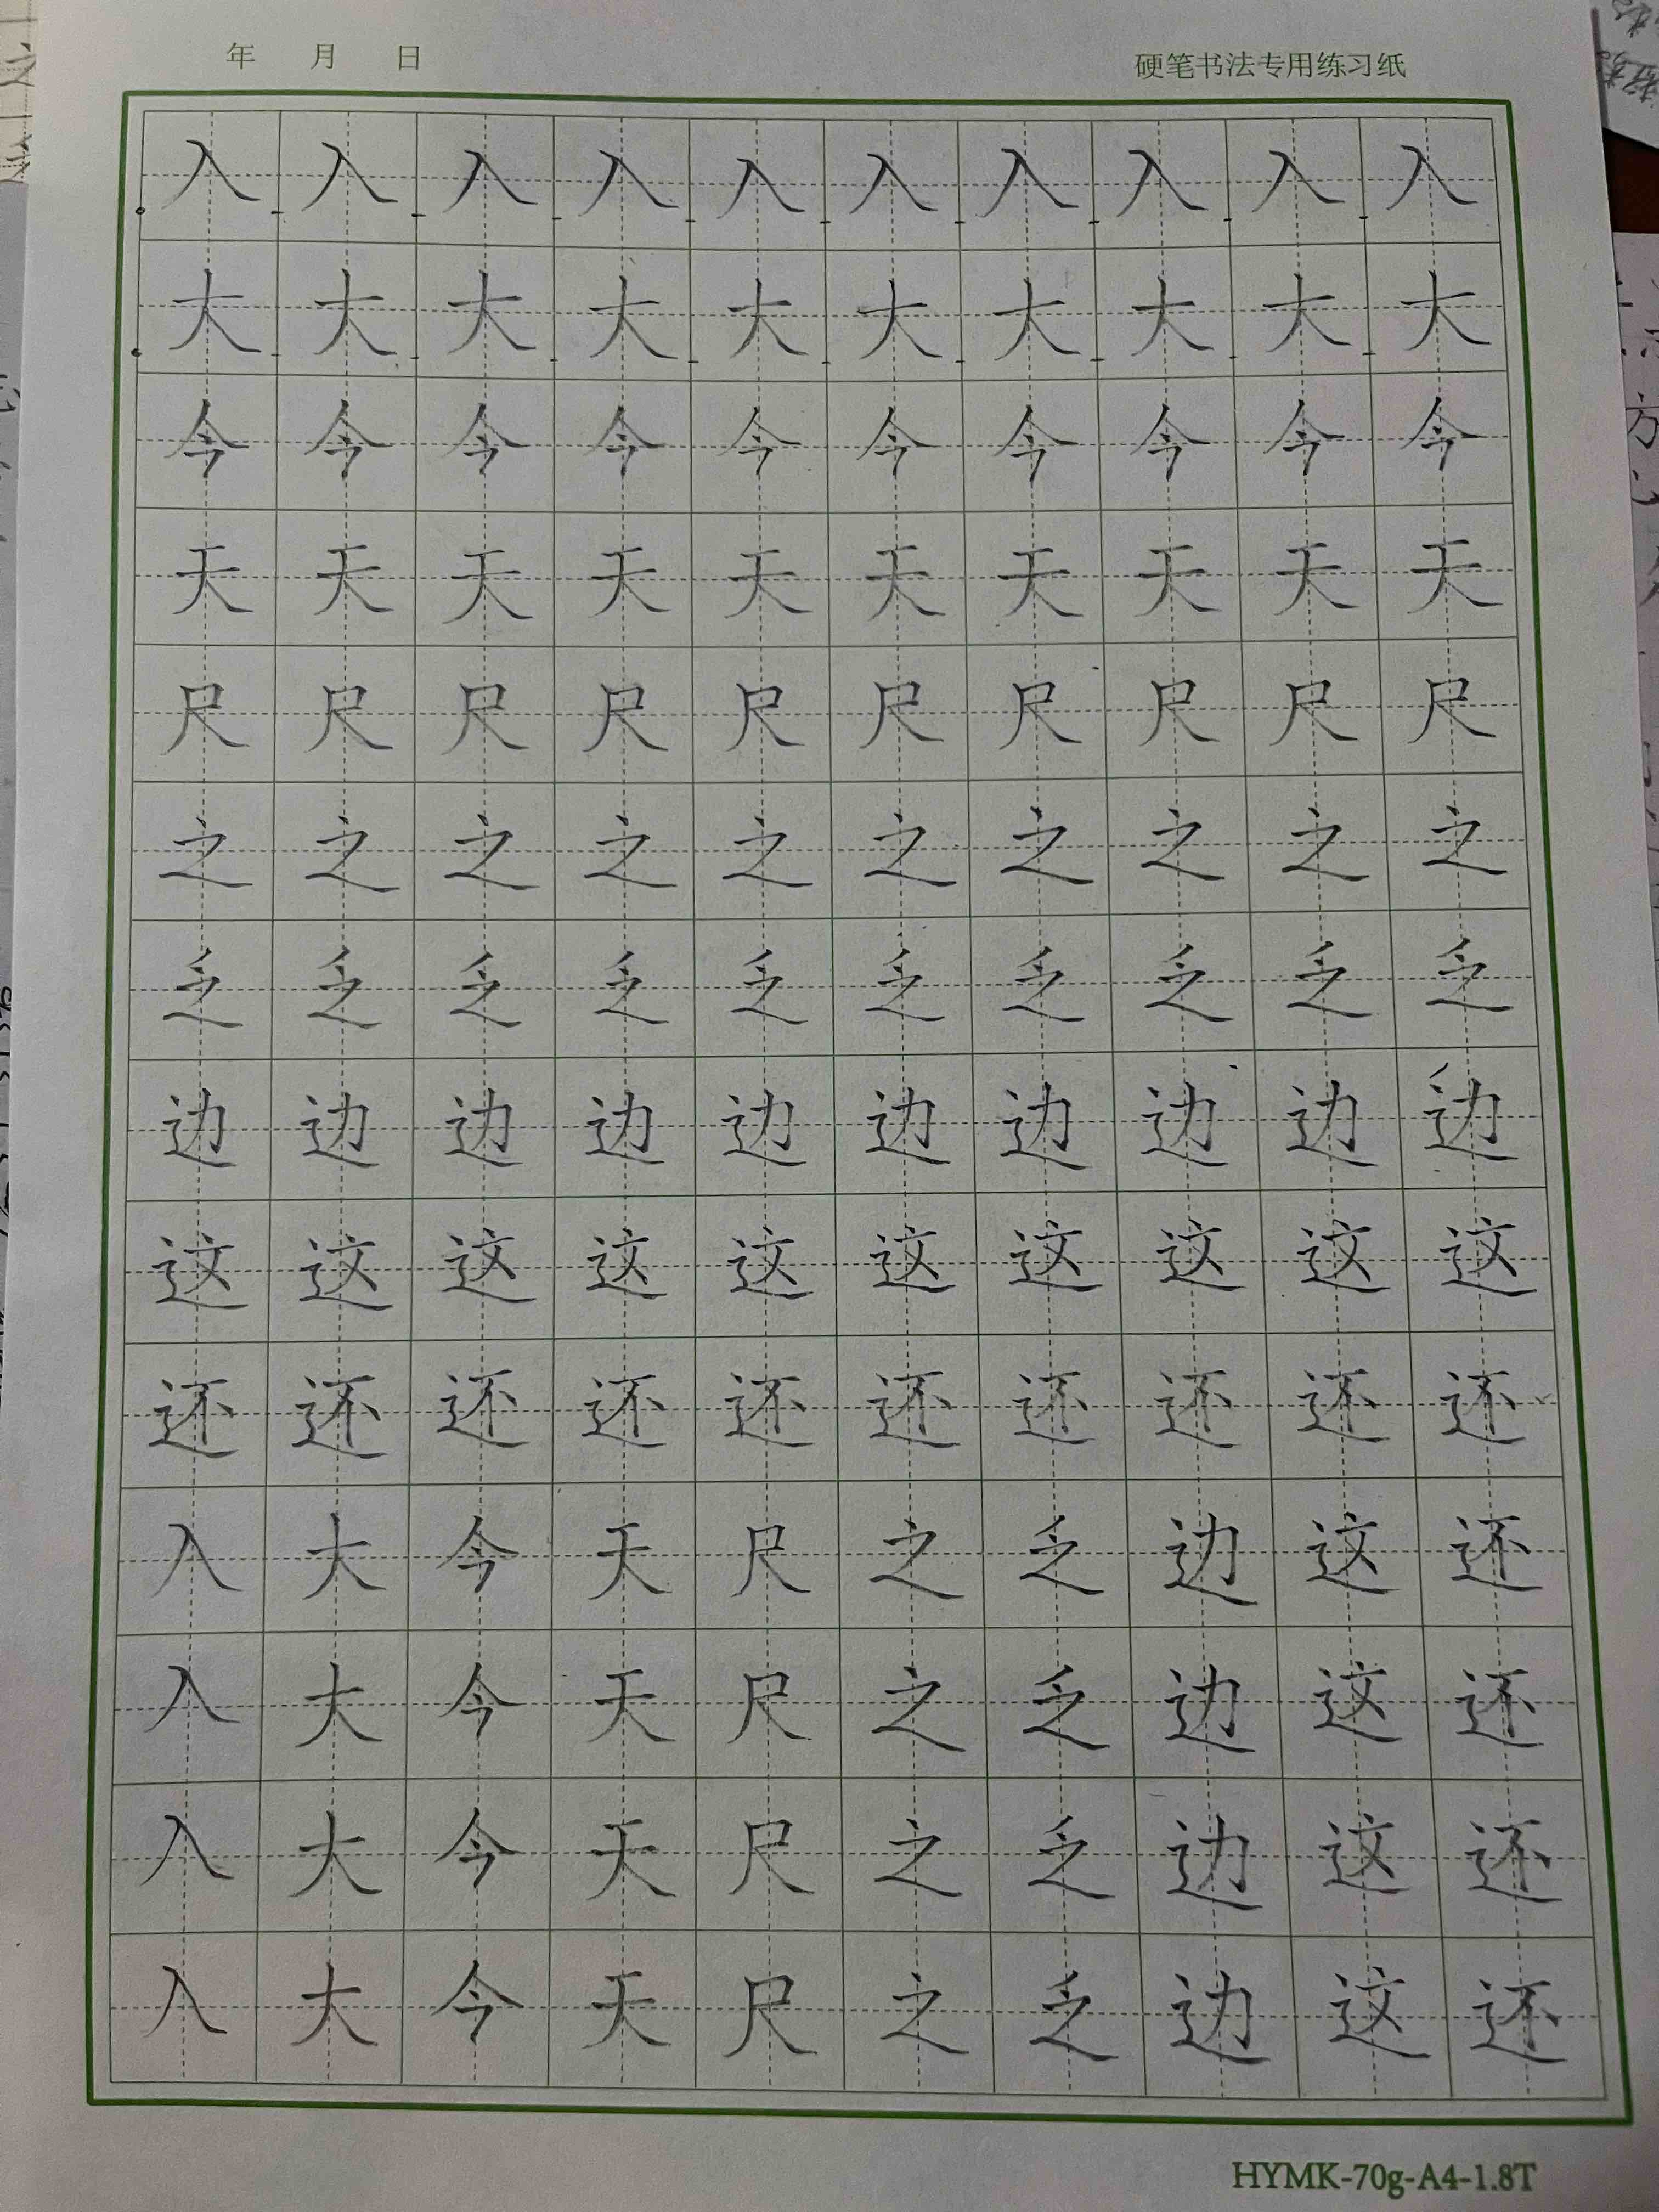 年 月 日 硬笔书法专用练习纸
入入入入入入入入入入
大大大大大大大大大大
今今今今今今今今今今
天天天天天天天天天天
尺尺尺尺尺尺尺尺尺尺
之之之之之之之之之之
乏乏乏乏乏乏乏乏乏乏
边边边边边边边边边边
这这这这这这这这这这
还还还还还还还还还还
入大今天尺之乏边这还
入大今天尺之乏边这还
入大今天尺之乏边这还
入大今天尺之乏边这还
HYMK-70g-A4-1.8T